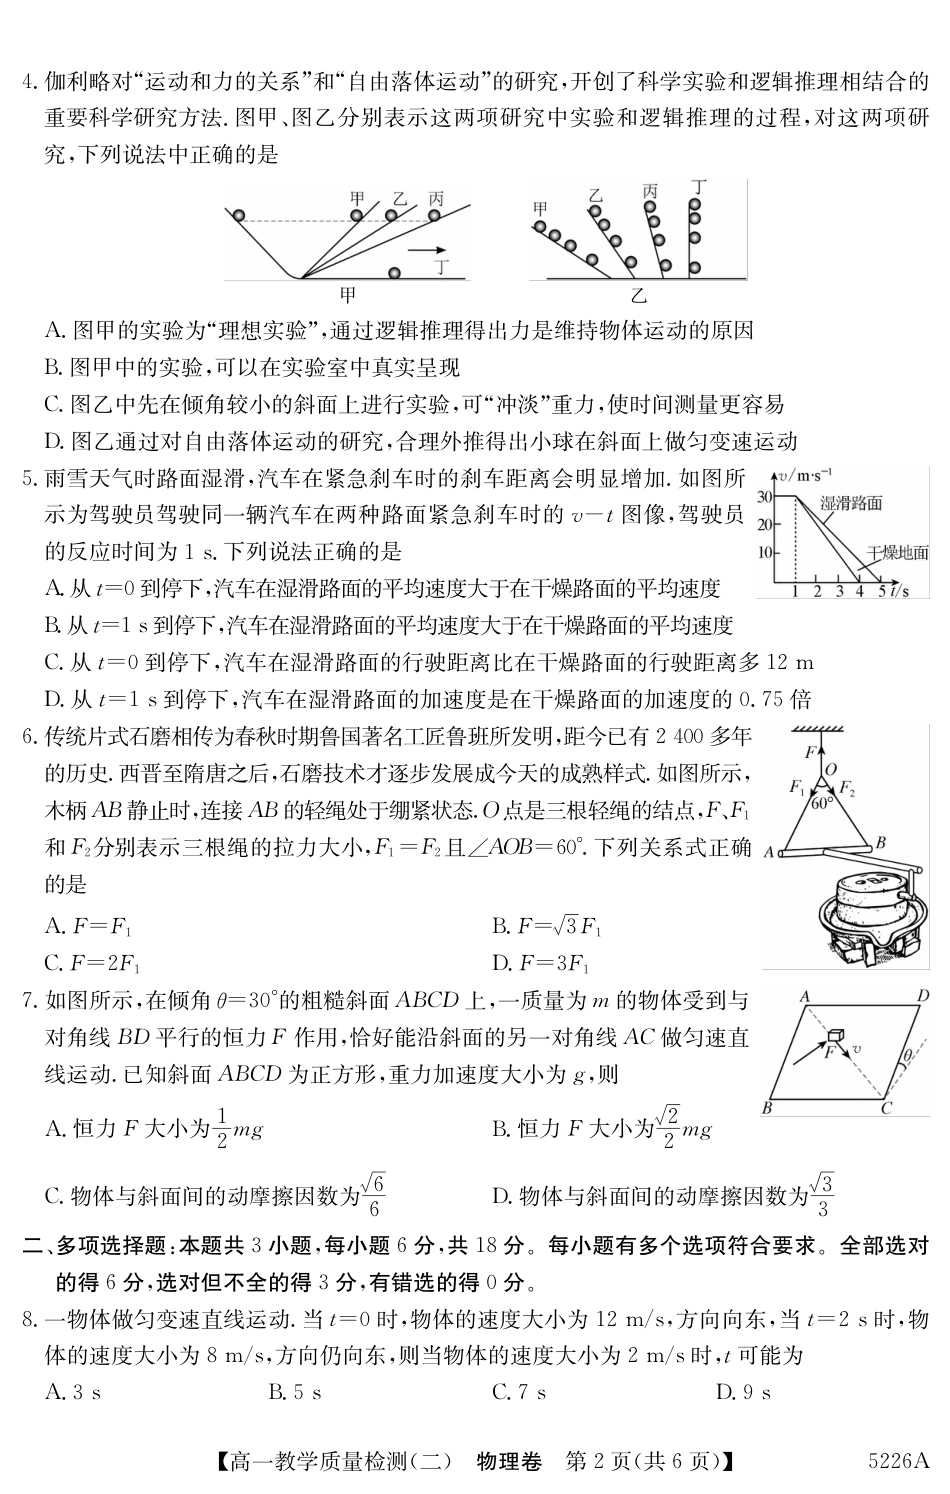 4. 伽利略对“运动和力的关系”和“自由落体运动”的研究,开创了科学实验和逻辑推理相结合的
重要科学研究方法. 图甲、图乙分别表示这两项研究中实验和逻辑推理的过程,对这两项研
究,下列说法中正确的是
甲 乙 丙
丁
甲
甲 乙 丙 丁
乙
A. 图甲的实验为“理想实验”,通过逻辑推理得出力是维持物体运动的原因
B. 图甲中的实验,可以在实验室中真实呈现
C. 图乙中先在倾角较小的斜面上进行实验,可“冲淡”重力,使时间测量更容易
D. 图乙通过对自由落体运动的研究,合理外推得出小球在斜面上做匀变速运动
5. 雨雪天气时路面湿滑,汽车在紧急刹车时的刹车距离会明显增加. 如图所
示为驾驶员驾驶同一辆汽车在两种路面紧急刹车时的 v-t 图像,驾驶员
的反应时间为 1 s. 下列说法正确的是
A. 从 t=0 到停下,汽车在湿滑路面的平均速度大于在干燥路面的平均速度
B. 从 t=1 s 到停下,汽车在湿滑路面的平均速度大于在干燥路面的平均速度
C. 从 t=0 到停下,汽车在湿滑路面的行驶距离比在干燥路面的行驶距离多 12 m
D. 从 t=1 s 到停下,汽车在湿滑路面的加速度是在干燥路面的加速度的 0.75 倍
v/m·s⁻¹
30
20
10
湿滑路面
干燥地面
1 2 3 4 5 t/s
6. 传统片式石磨相传为春秋时期鲁国著名工匠鲁班所发明,距今已有 2 400 多年
的历史. 西晋至隋唐之后,石磨技术才逐步发展成今天的成熟样式. 如图所示,
木柄 AB 静止时,连接 AB 的轻绳处于绷紧状态. O 点是三根轻绳的结点,F、F₁
和 F₂分别表示三根绳的拉力大小,F₁=F₂且∠AOB=60°. 下列关系式正确
的是
F
O
F₁ F₂
60°
A B
A. F=F₁ B. F=√3F₁
C. F=2F₁ D. F=3F₁
7. 如图所示,在倾角 θ=30°的粗糙斜面 ABCD 上,一质量为 m 的物体受到与
对角线 BD 平行的恒力 F 作用,恰好能沿斜面的另一对角线 AC 做匀速直
线运动. 已知斜面 ABCD 为正方形,重力加速度大小为 g,则
A D
F v θ
B C
A. 恒力 F 大小为1/2 mg B. 恒力 F 大小为√2/2 mg
C. 物体与斜面间的动摩擦因数为√6/6 D. 物体与斜面间的动摩擦因数为√3/3
二、多项选择题:本题共 3 小题,每小题 6 分,共 18 分。每小题有多个选项符合要求。全部选对
的得 6 分,选对但不全的得 3 分,有错选的得 0 分。
8. 一物体做匀变速直线运动. 当 t=0 时,物体的速度大小为 12 m/s,方向向东,当 t=2 s 时,物
体的速度大小为 8 m/s,方向仍向东,则当物体的速度大小为 2 m/s 时,t 可能为
A. 3 s B. 5 s C. 7 s D. 9 s
【高一教学质量检测(二) 物理卷 第 2 页(共 6 页)】 5226A